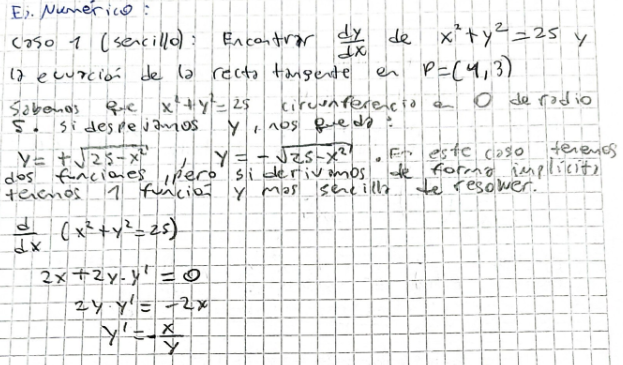 Ej. Numérico:
Caso 1 (sencillo): Encontrar dy/dx de x²+y²=25 y
la ecuación de la recta tangente en P=(4,3)
Sabemos que x²+y²=25 circunferencia en O de radio
5. si despejamos y, nos queda:
y=+√25-x² , y=-√25-x² . En este caso tenemos
dos funciones, pero si derivamos de forma implícita
tenemos 1 función y mas sencilla de resolver.
d/dx (x²+y²=25)
2x+2y.y'=0
2y.y'=-2x
y'=-x/y